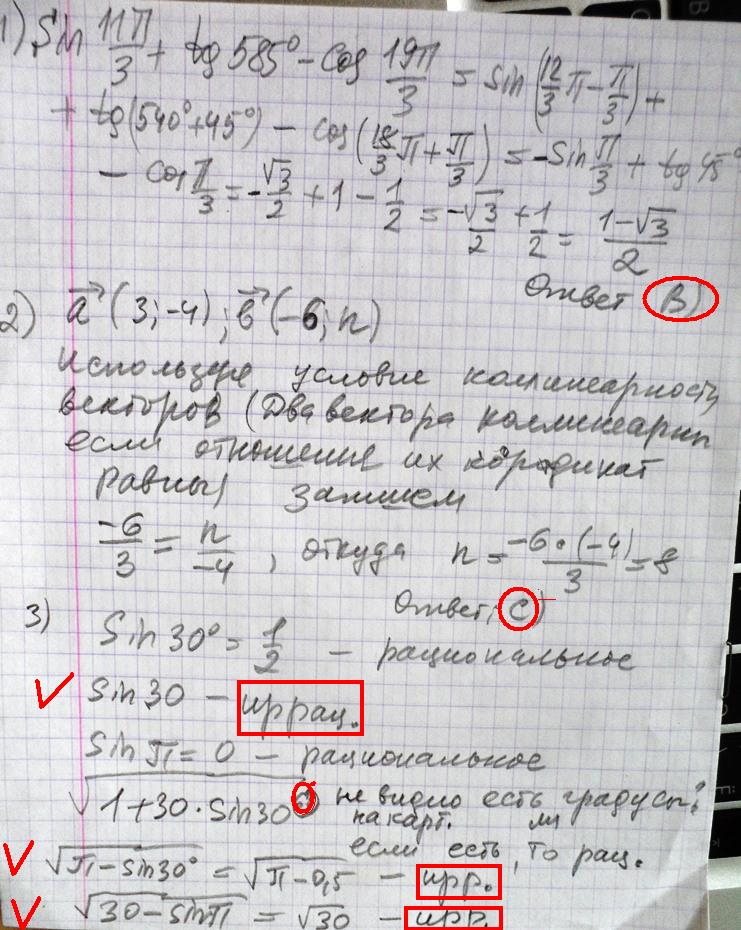 1) Sin 11π/3 + tg 585° - cos 19π/3 = sin(12/3 π - π/3) +
+ tg(540° + 45°) - cos(18/3 π + π/3) = -sin π/3 + tg 45°
- cos π/3 = -√3/2 + 1 - 1/2 = -√3/2 + 1/2 = (1-√3)/2
Ответ B)
2) a→(3;-4); b→(-6;n)
Используя условие коллинеарность
векторов (Два вектора коллинеарны
если отношение их координат
равны) запишем
-6/3 = n/-4, откуда n = -6·(-4)/3 = 8
Ответ: C)
3) Sin 30° = 1/2 - рациональное
Sin 30 - иррац.
Sin π = 0 - рациональное
√(1+30·sin 30°) не видно есть градусы?
на карт. ли
если есть, то рац.
√(π-sin30°) = √(π-0,5) - ирр.
√(30-sinπ) = √30 - ирр.